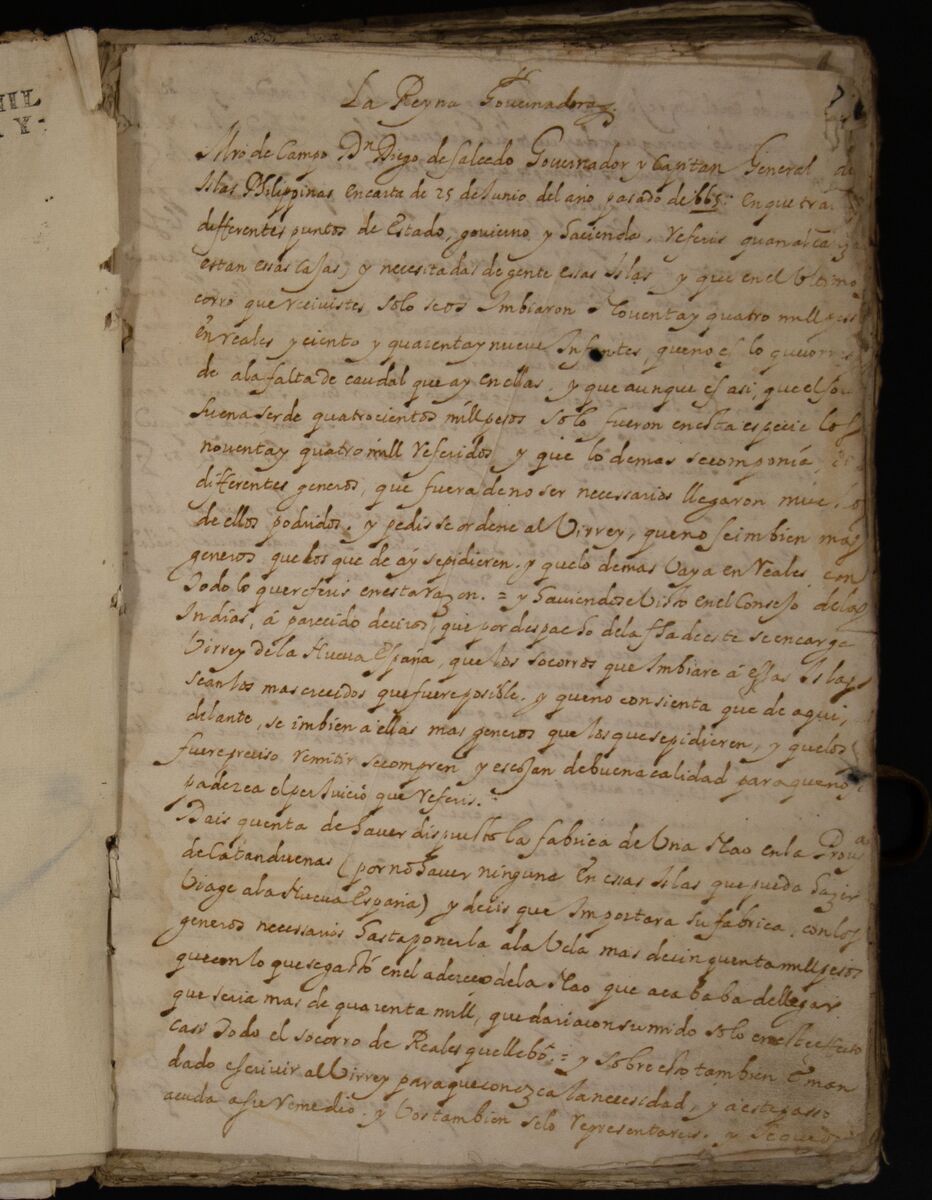 La Reyna Governadora
Mro de Campo Dn Diego de Salcedo Governador y Capitan General de
Islas Philippinas en carta de 25 de Junio del año pasado de 665 en que tra
differentes puntos de Estado, govierno y hacienda, referis quan alca
estan essas caxas, y necesitadas de gente essas Islas y que en el Ultimo
corro que receivistes solo se os Imbiaron noventa y quatro mill pesos
en reales y ciento y quarenta y nueve Infantes, que no es lo que
de a la falta de caudal que ay en ellas, y que aunque es asi, que el so
suena ser de quatrocientos mill pesos solo fueron en esta especie los
noventa y quatro mill referidos y que lo demas se componia, de
differentes generos, que fuera de no ser necessarios llegaron muchos
de ellos podridos. y pedis se ordene al Virrey, que no se imbien mas
generos que los que de ay se pidieren. y que lo demas vaya en reales con
todo lo que referis en esta razon. = y haviendose visto en el Consejo de las
Indias, á parecido deciros, que por despacho de la fha de este se encarga
Virrey de la Nueva España, que los socorros que Imbiare á essas Islas
sean los mas crecidos que fuere posible. y que no consienta que de aqui
delante, se imbien a ellas mas generos que los que se pidieren, y que los
fuere preciso remitir se compren y escojan de buena calidad para que no se
padezca el perjuicio que referis.
Dais quenta de haver dispuesto la fabrica de Una Nao en la Prova
de Catanduenas (por no haver ninguna en essas Islas que pueda hazer
Viage a la Nueva España) y decis que Importara su fabrica, con los
generos necessarios hasta ponerla a la Vela mas de cinquenta mill pesos
que con lo que se gastó en el aderezo de la Nao que acababa de llegar
que seria mas de quarenta mill, quedaria consumido solo en este effecto
casi todo el socorro de Reales que llebó. = y sobre esto tambien é man
dado escrivir al Virrey para que conozca la necesidad, y a este passo
acuda a su remedio. y Vos tambien se lo representareis. y